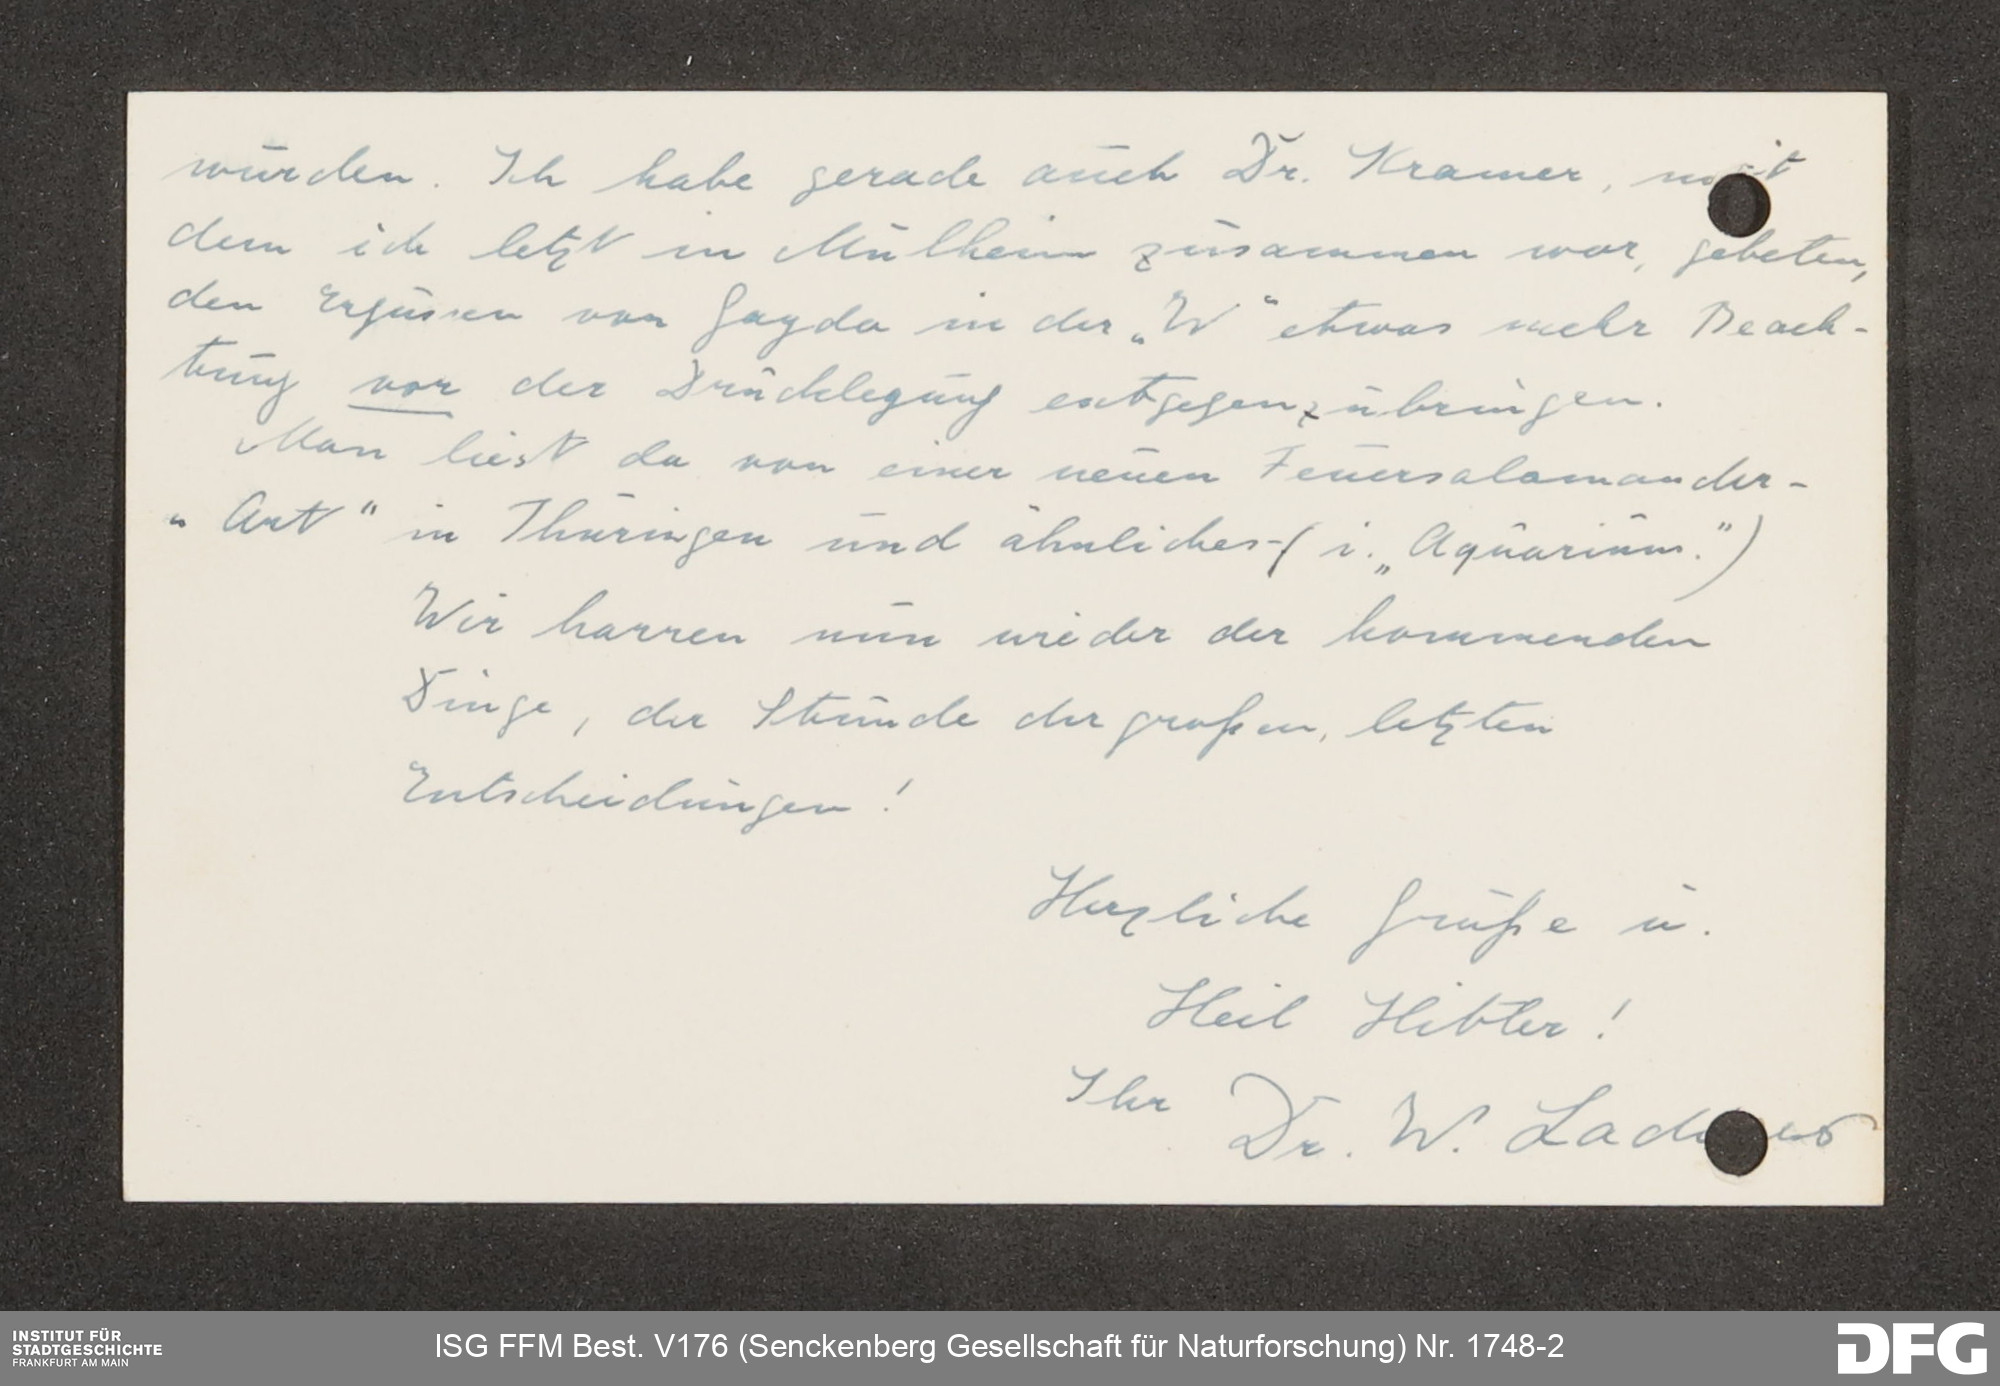 würden. Ich habe gerade auch Dr. Kramer, mit
dem ich letzt in Mülheim zusammen war, gebeten,
den Ergüssen von Gayda in der „W“ etwas mehr Beach-
tung vor der Drucklegung entgegenzubringen.
Man liest da von einer neuen Feuersalamander-
„Art“ in Thüringen und ähnliches-(i. „Aquarium.“)
Wir harren nun wieder der kommenden
Dinge, der Stunde der großen, letzten
Entscheidungen!
Herzliche Grüße u.
Heil Hitler!
Ihr Dr. W. Ladiges
INSTITUT FÜR
STADTGESCHICHTE
FRANKFURT AM MAIN
ISG FFM Best. V176 (Senckenberg Gesellschaft für Naturforschung) Nr. 1748-2
DFG